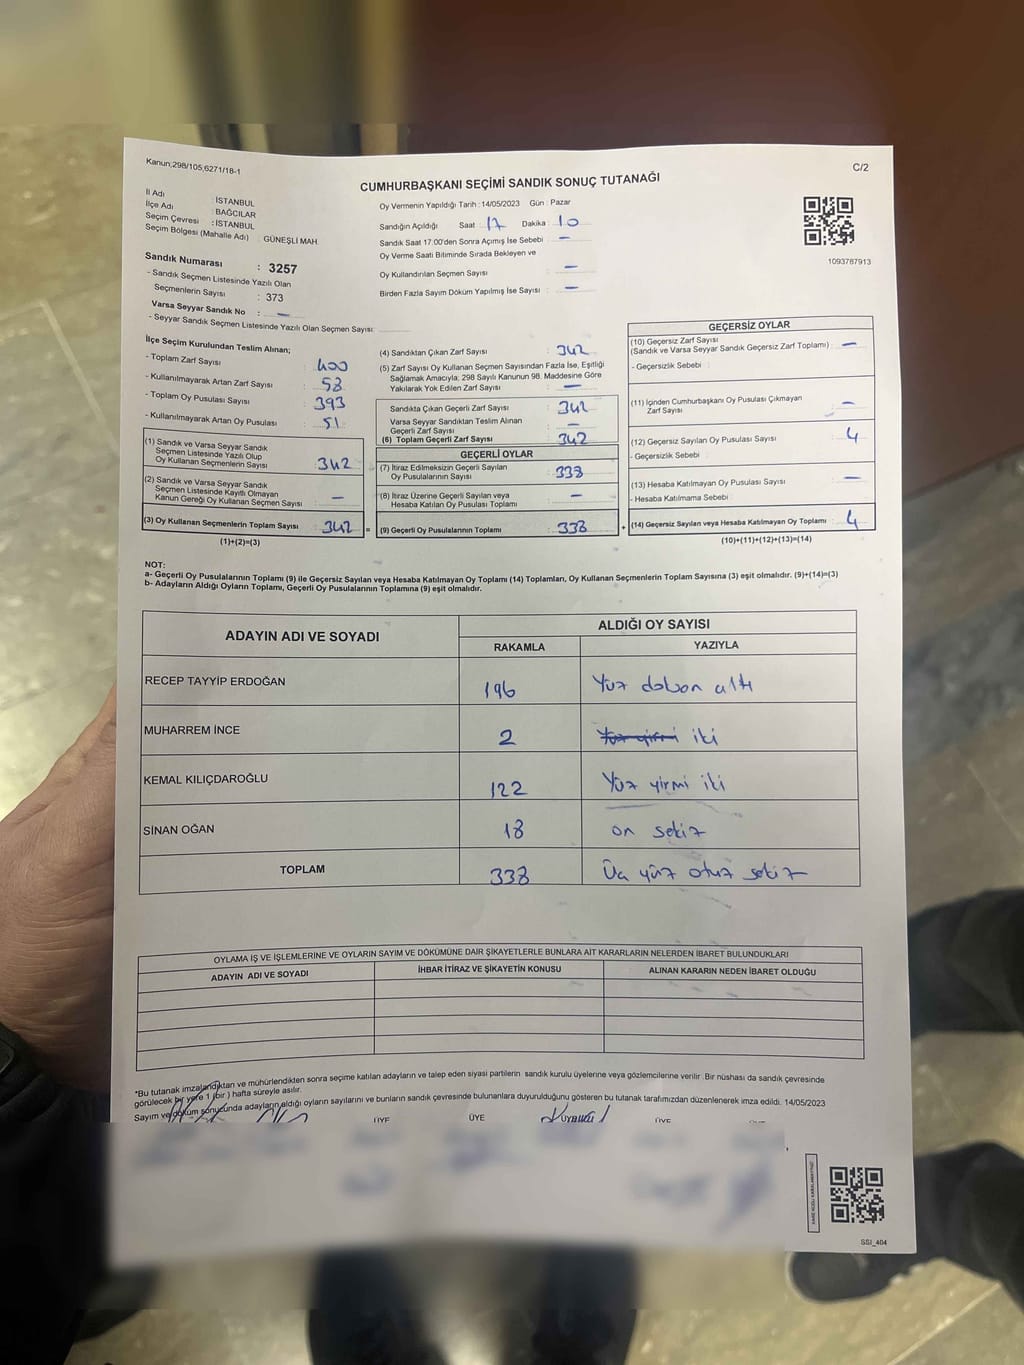 Kanun;298/105,6271/18-1
C/2
CUMHURBAŞKANI SEÇİMİ SANDIK SONUÇ TUTANAĞI
İl Adı : İSTANBUL
İlçe Adı : BAĞCILAR
Seçim Çevresi : İSTANBUL
Seçim Bölgesi (Mahalle Adı) : GÜNEŞLİ MAH.
Sandık Numarası : 3257
- Sandık Seçmen Listesinde Yazılı Olan
Seçmenlerin Sayısı : 373
Varsa Seyyar Sandık No : —
- Seyyar Sandık Seçmen Listesinde Yazılı Olan Seçmen Sayısı:
Oy Vermenin Yapıldığı Tarih : 14/05/2023 Gün : Pazar
Sandığın Açıldığı Saat : 17 Dakika : 10
Sandık Saat 17.00'den Sonra Açımış İse Sebebi : —
Oy Verme Saati Bitiminde Sırada Bekleyen ve
Oy Kullandırılan Seçmen Sayısı : —
Birden Fazla Sayım Döküm Yapılmış İse Sayısı : —
1093787913
İlçe Seçim Kurulundan Teslim Alınan;
- Toplam Zarf Sayısı : 400
- Kullanılmayarak Artan Zarf Sayısı : 58
- Toplam Oy Pusulası Sayısı : 393
- Kullanılmayarak Artan Oy Pusulası : 51
(1) Sandık ve Varsa Seyyar Sandık
Seçmen Listesinde Yazılı Olup
Oy Kullanan Seçmenlerin Sayısı : 342
(2) Sandık ve Varsa Seyyar Sandık
Seçmen Listesinde Kayıtlı Olmayan
Kanun Gereği Oy Kullanan Seçmen Sayısı : —
(3) Oy Kullanan Seçmenlerin Toplam Sayısı : 342 =
(1)+(2)=(3)
(4) Sandıktan Çıkan Zarf Sayısı : 342
(5) Zarf Sayısı Oy Kullanan Seçmen Sayısından Fazla İse, Eşitliği
Sağlamak Amacıyla; 298 Sayılı Kanunun 98. Maddesine Göre
Yakılarak Yok Edilen Zarf Sayısı : —
Sandıkta Çıkan Geçerli Zarf Sayısı : 342
Varsa Seyyar Sandıktan Teslim Alınan
Geçerli Zarf Sayısı : —
(6) Toplam Geçerli Zarf Sayısı : 342
GEÇERLİ OYLAR
(7) İtiraz Edilmeksizin Geçerli Sayılan
Oy Pusulalarının Sayısı : 338
(8) İtiraz Üzerine Geçerli Sayılan veya
Hesaba Katılan Oy Pusulası Toplamı : —
(9) Geçerli Oy Pusulalarının Toplamı : 338 +
GEÇERSİZ OYLAR
(10) Geçersiz Zarf Sayısı
(Sandık ve Varsa Seyyar Sandık Geçersiz Zarf Toplamı) : —
- Geçersizlik Sebebi :
(11) İçinden Cumhurbaşkanı Oy Pusulası Çıkmayan
Zarf Sayısı : —
(12) Geçersiz Sayılan Oy Pusulası Sayısı : 4
- Geçersizlik Sebebi :
(13) Hesaba Katılmayan Oy Pusulası Sayısı : —
- Hesaba Katılmama Sebebi :
(14) Geçersiz Sayılan veya Hesaba Katılmayan Oy Toplamı : 4
(10)+(11)+(12)+(13)=(14)
NOT:
a- Geçerli Oy Pusulalarının Toplamı (9) ile Geçersiz Sayılan veya Hesaba Katılmayan Oy Toplamı (14) Toplamları, Oy Kullanan Seçmenlerin Toplam Sayısına (3) eşit olmalıdır. (9)+(14)=(3)
b- Adayların Aldığı Oyların Toplamı, Geçerli Oy Pusulalarının Toplamına (9) eşit olmalıdır.
ADAYIN ADI VE SOYADI
ALDIĞI OY SAYISI
RAKAMLA YAZIYLA
RECEP TAYYİP ERDOĞAN 196 Yüz doksan altı
MUHARREM İNCE 2 Yüz yirmi iki
KEMAL KILIÇDAROĞLU 122 Yüz yirmi iki
SİNAN OĞAN 18 on sekiz
TOPLAM 338 Üç yüz otuz sekiz
OYLAMA İŞ VE İŞLEMLERİNE VE OYLARIN SAYIM VE DÖKÜMÜNE DAİR ŞİKAYETLERLE BUNLARA AİT KARARLARIN NELERDEN İBARET BULUNDUKLARI
ADAYIN ADI VE SOYADI İHBAR İTİRAZ VE ŞİKAYETİN KONUSU ALINAN KARARIN NEDEN İBARET OLDUĞU
*Bu tutanak imzalandıktan ve mühürlendikten sonra seçime katılan adayların ve talep eden siyasi partilerin sandık kurulu üyelerine veya gözlemcilerine verilir. Bir nüshası da sandık çevresinde
görülecek bir yere 1 (bir) hafta süreyle asılır.
Sayım ve döküm sonucunda adayların aldığı oyların sayılarını ve bunların sandık çevresinde bulunanlara duyurulduğunu gösteren bu tutanak tarafımızdan düzenlenerek imza edildi. 14/05/2023
ÜYE ÜYE ÜYE
SSI_404